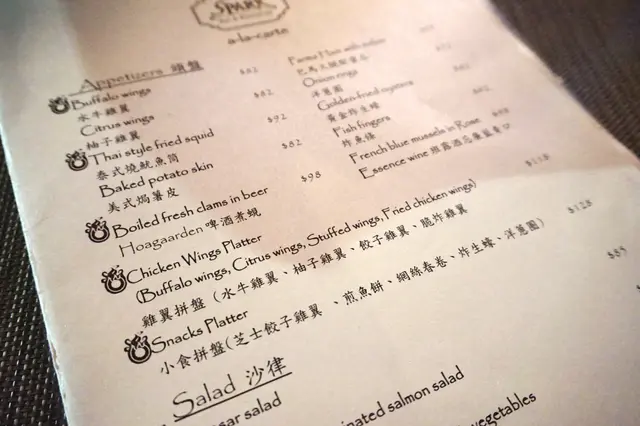 SPARK
a-la-carte
Appetizers 頭盤
Buffalo wings $82
水牛雞翼
Citrus wings $82
柚子雞翼
Thai style fried squid $92
泰式燒魷魚筒
Baked potato skin $82
美式焗薯皮
Boiled fresh clams in beer $98
Hoagaarden 啤酒煮蜆
Chicken Wings Platter
(Buffalo wings, Citrus wings, Stuffed wings, Fried chicken wings) $118
雞翼拼盤 (水牛雞翼、柚子雞翼、餃子雞翼、脆炸雞翼
Snacks Platter $128
小食拼盤(芝士餃子雞翼、煎魚餅、網絲春卷、炸生蠔、洋蔥圈)
Onion rings
洋蔥圈
Golden fried oysters
黃金炸生蠔
Fish fingers
炸魚條
French blue mussels in Rose
Essence wine
Salad 沙律
sar salad
inated salmon salad
vegetables